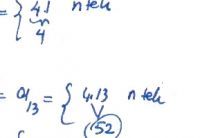 = { 4.1 n tek
4
= a₁₃ = { 4.13 n tek
52